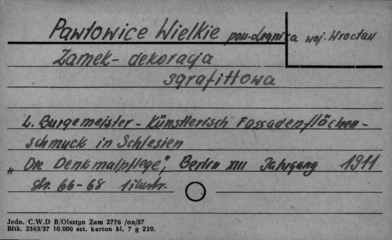 Pawłowice Wielkie pow. Legnica woj. Wrocław
Zamek - dekoracja
sgrafittowa
L. Burgemeister - Künstlerisch Fassadenflächen-
schmuck in Schlesien
„Die Denkmalpflege", Berlin XIII Jahrgang 1911
str. 66-68 ilustr.
Jedn. C.W.D B/Olsztyn Zam 2776 /on/57
Bltk. 2563/57 10.000 szt. karton kl. 7 g 220.